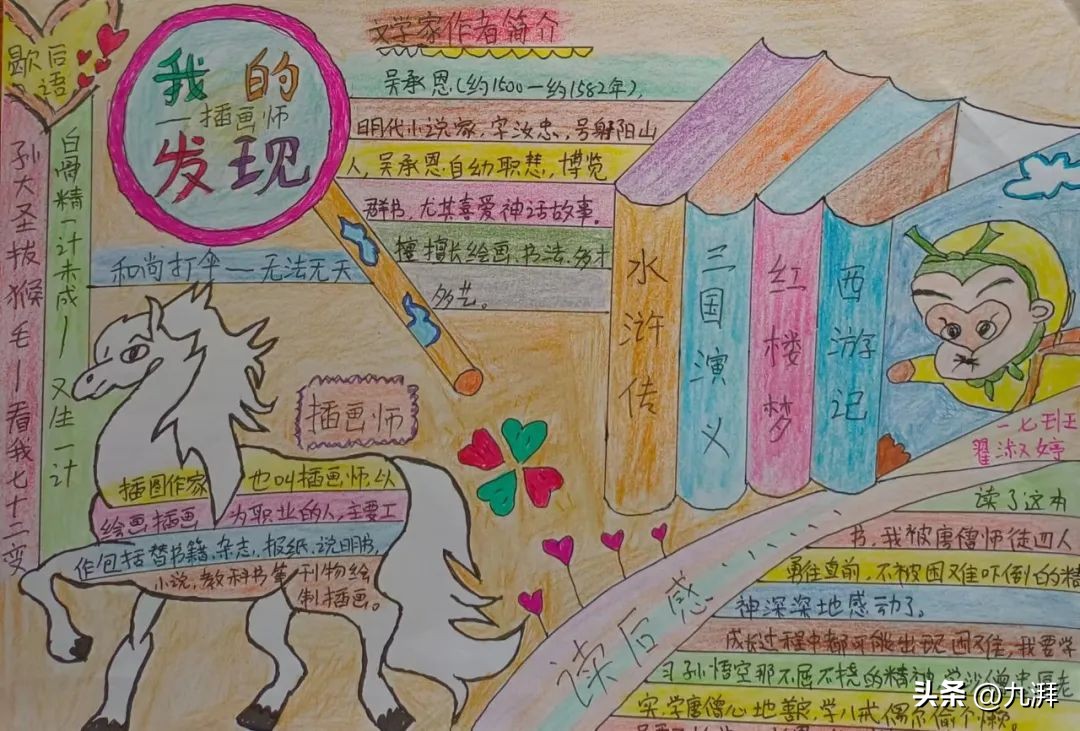 歇后
语
我的
—插画师
发现
文学家作者简介
吴承恩(约1500—约1582年),
明代小说家,字汝忠,号射阳山
人,吴承恩自幼聪慧,博览
群书,尤其喜爱神话故事.
擅长绘画、书法,多才
多艺。
孙大圣拔猴毛—看我七十二变
白骨精一计未成—又生一计
和尚打伞—无法无天
水浒传
三国演义
红楼梦
西游记
一七班
翟淑婷
插画师
插图作家 也叫插画师,以
绘画插画 为职业的人,主要工
作包括替书籍、杂志、报纸、说明书,
小说,教科书等刊物绘
制插画。
读后感......
读了这本
书,我被唐僧师徒四人
勇往直前,不被困难吓倒的精
神深深地感动了。
成长过程中都可能出现困难,我要学
习孙悟空那不屈不挠的精神,学沙僧忠厚老
实,学唐僧心地善良,学八戒偶尔偷个懒。
头条 @九湃